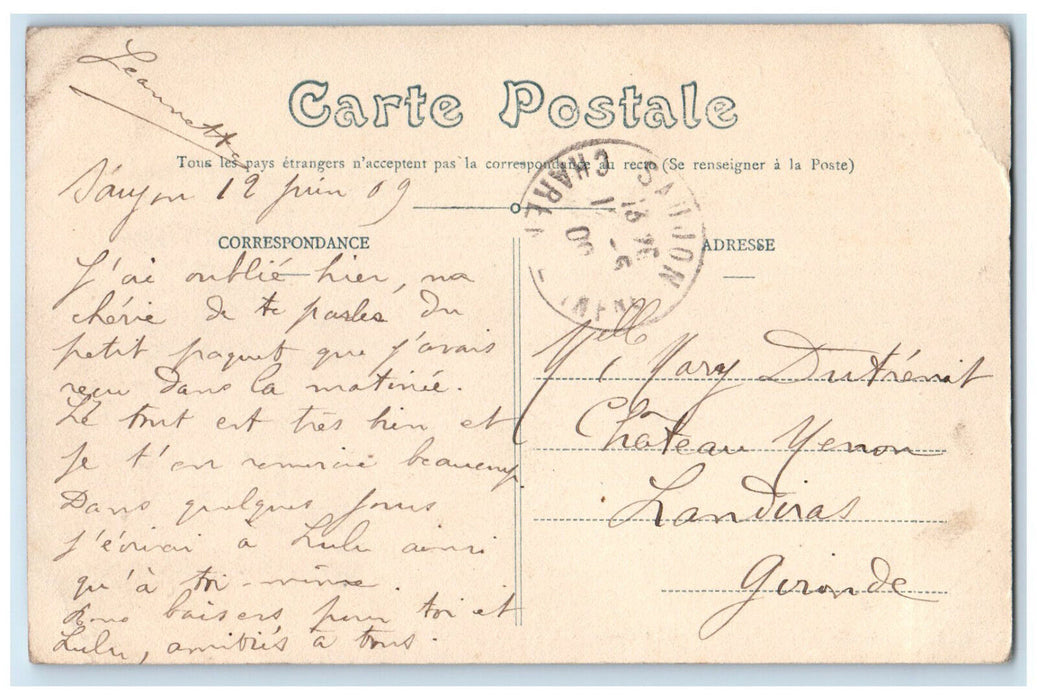 Jeannette
Carte Postale
Tous les pays étrangers n'acceptent pas la correspondance au recto (Se renseigner à la Poste)
Saujon 12 juin 09
SAUJON
CHARENTE INF
CORRESPONDANCE
ADRESSE
J'ai oublié hier, ma
chérie de te parler du
petit paquet que j'avais
reçu dans la matinée.
Le tout est très bien et
je t'en remercie beaucoup
Dans quelques jours
j'écrirai à Lulu ainsi
qu'à toi-même.
Bons baisers pour toi et
Lulu, amitiés à tous.
Mlle Mary Dutrénit
Château Menon
Landiras
Gironde